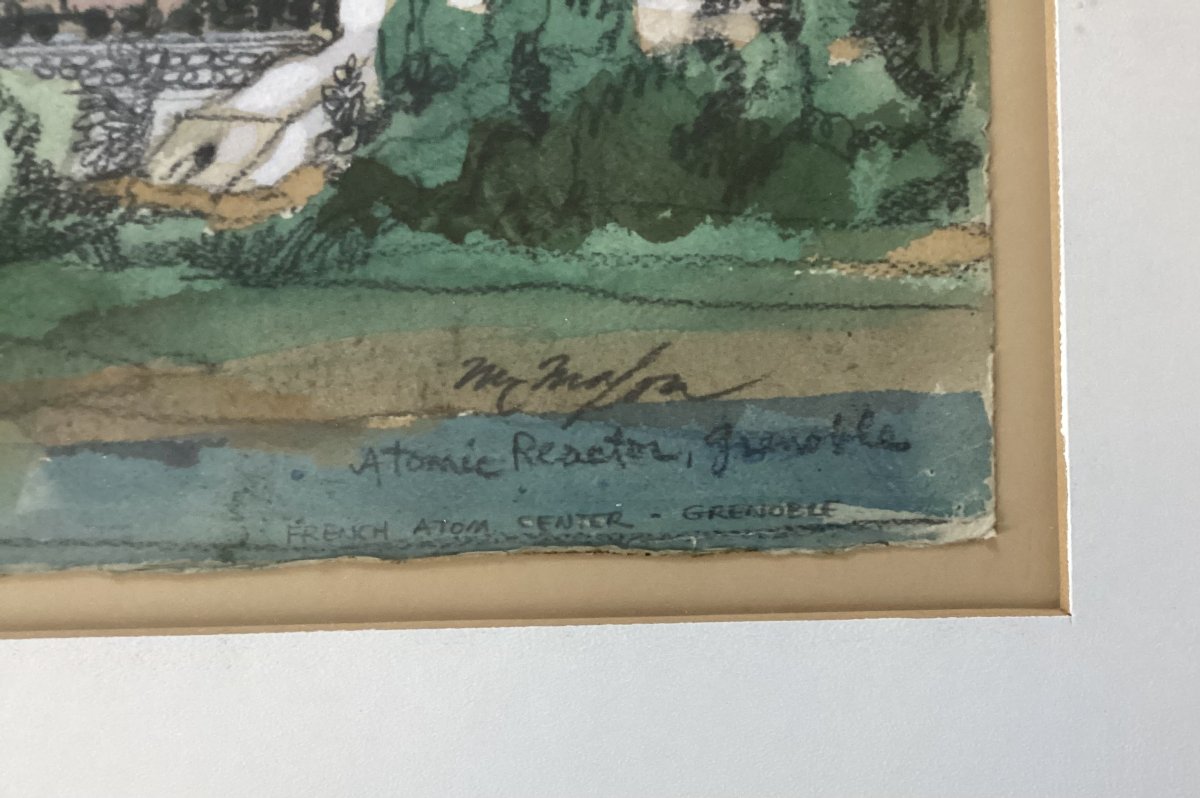 Atomic Reactor, Grenoble
FRENCH ATOM CENTER - GRENOBLE